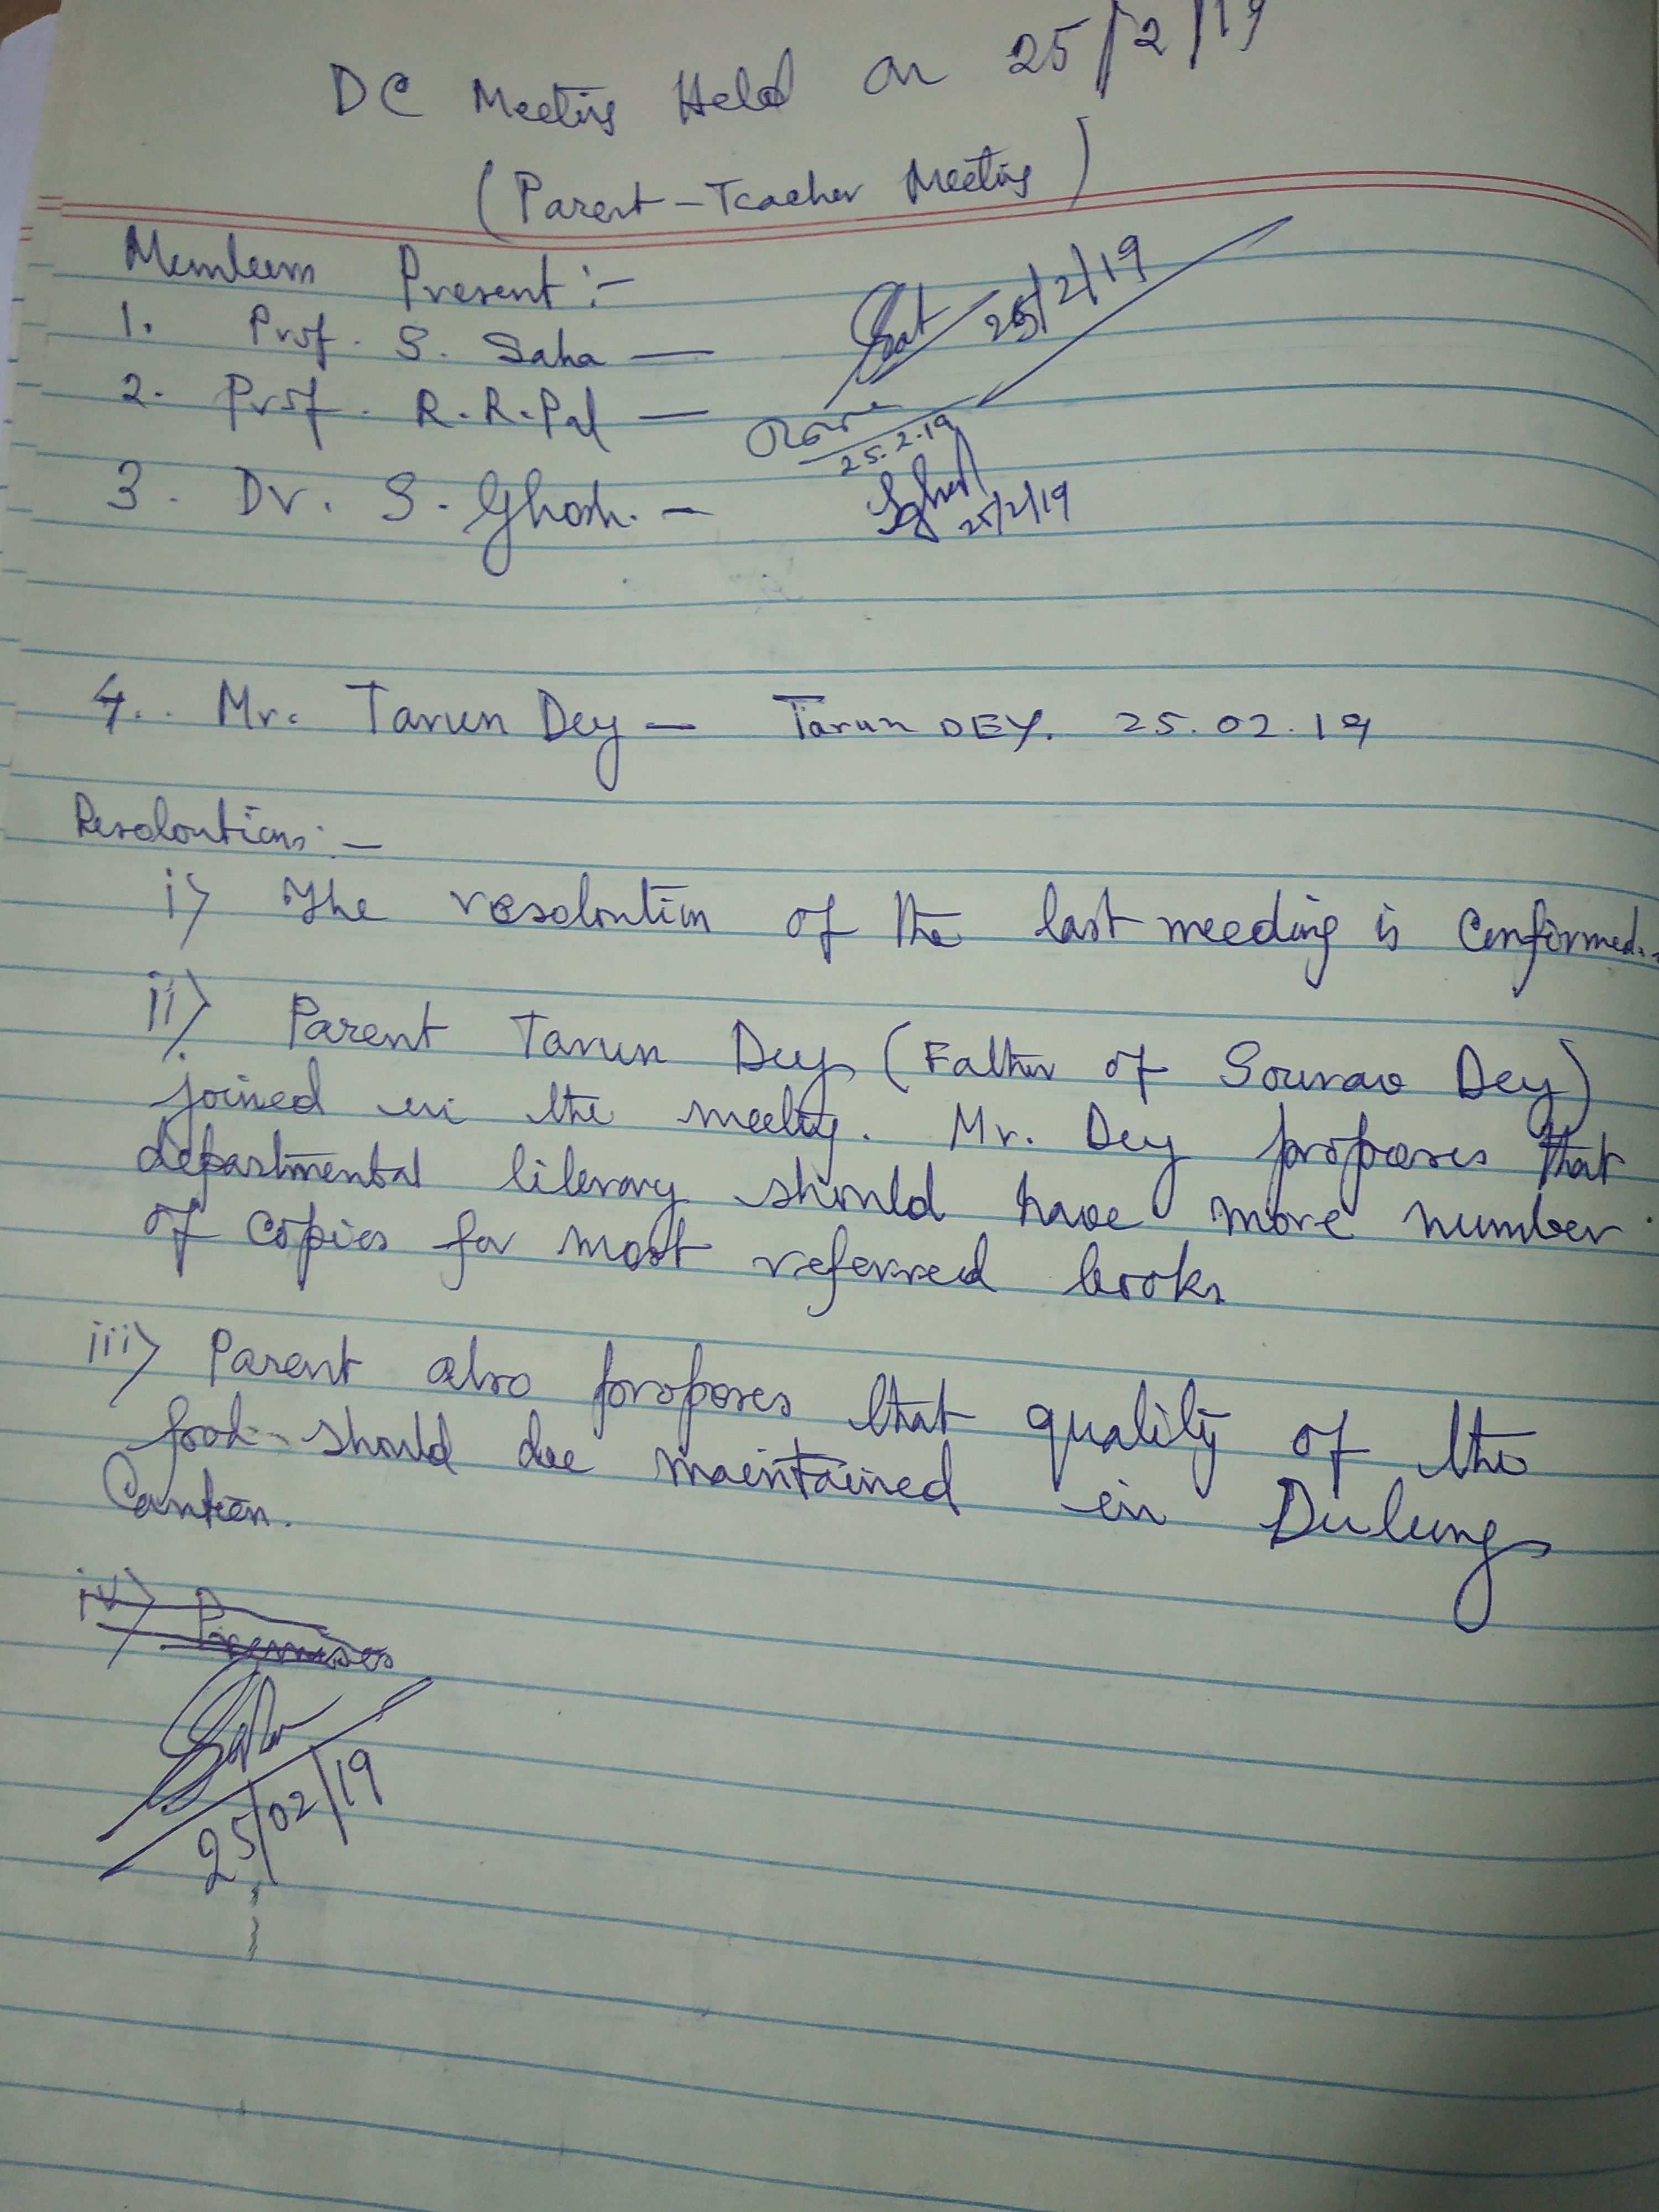 DC Meeting Held on 25/2/19
(Parent-Teacher Meeting)
Members Present :-
1. Prof. S. Saha — 25/2/19
2. Prof. R.R.Pal — 25.2.19
3. Dr. S. Ghosh. — 25/2/19
4. Mr. Tarun Dey — Tarun DEY. 25.02.19
Resoloutions :-
i) The resoloution of the last meeding is confirmed.
ii) Parent Tarun Dey (Father of Sourav Dey)
joined in the meeting. Mr. Dey proposes that
departmental library should have more number
of copies for most referred books
iii) Parent also proposes that quality of the
food should be maintained in Dulung
Canteen.
iv)
25/02/19